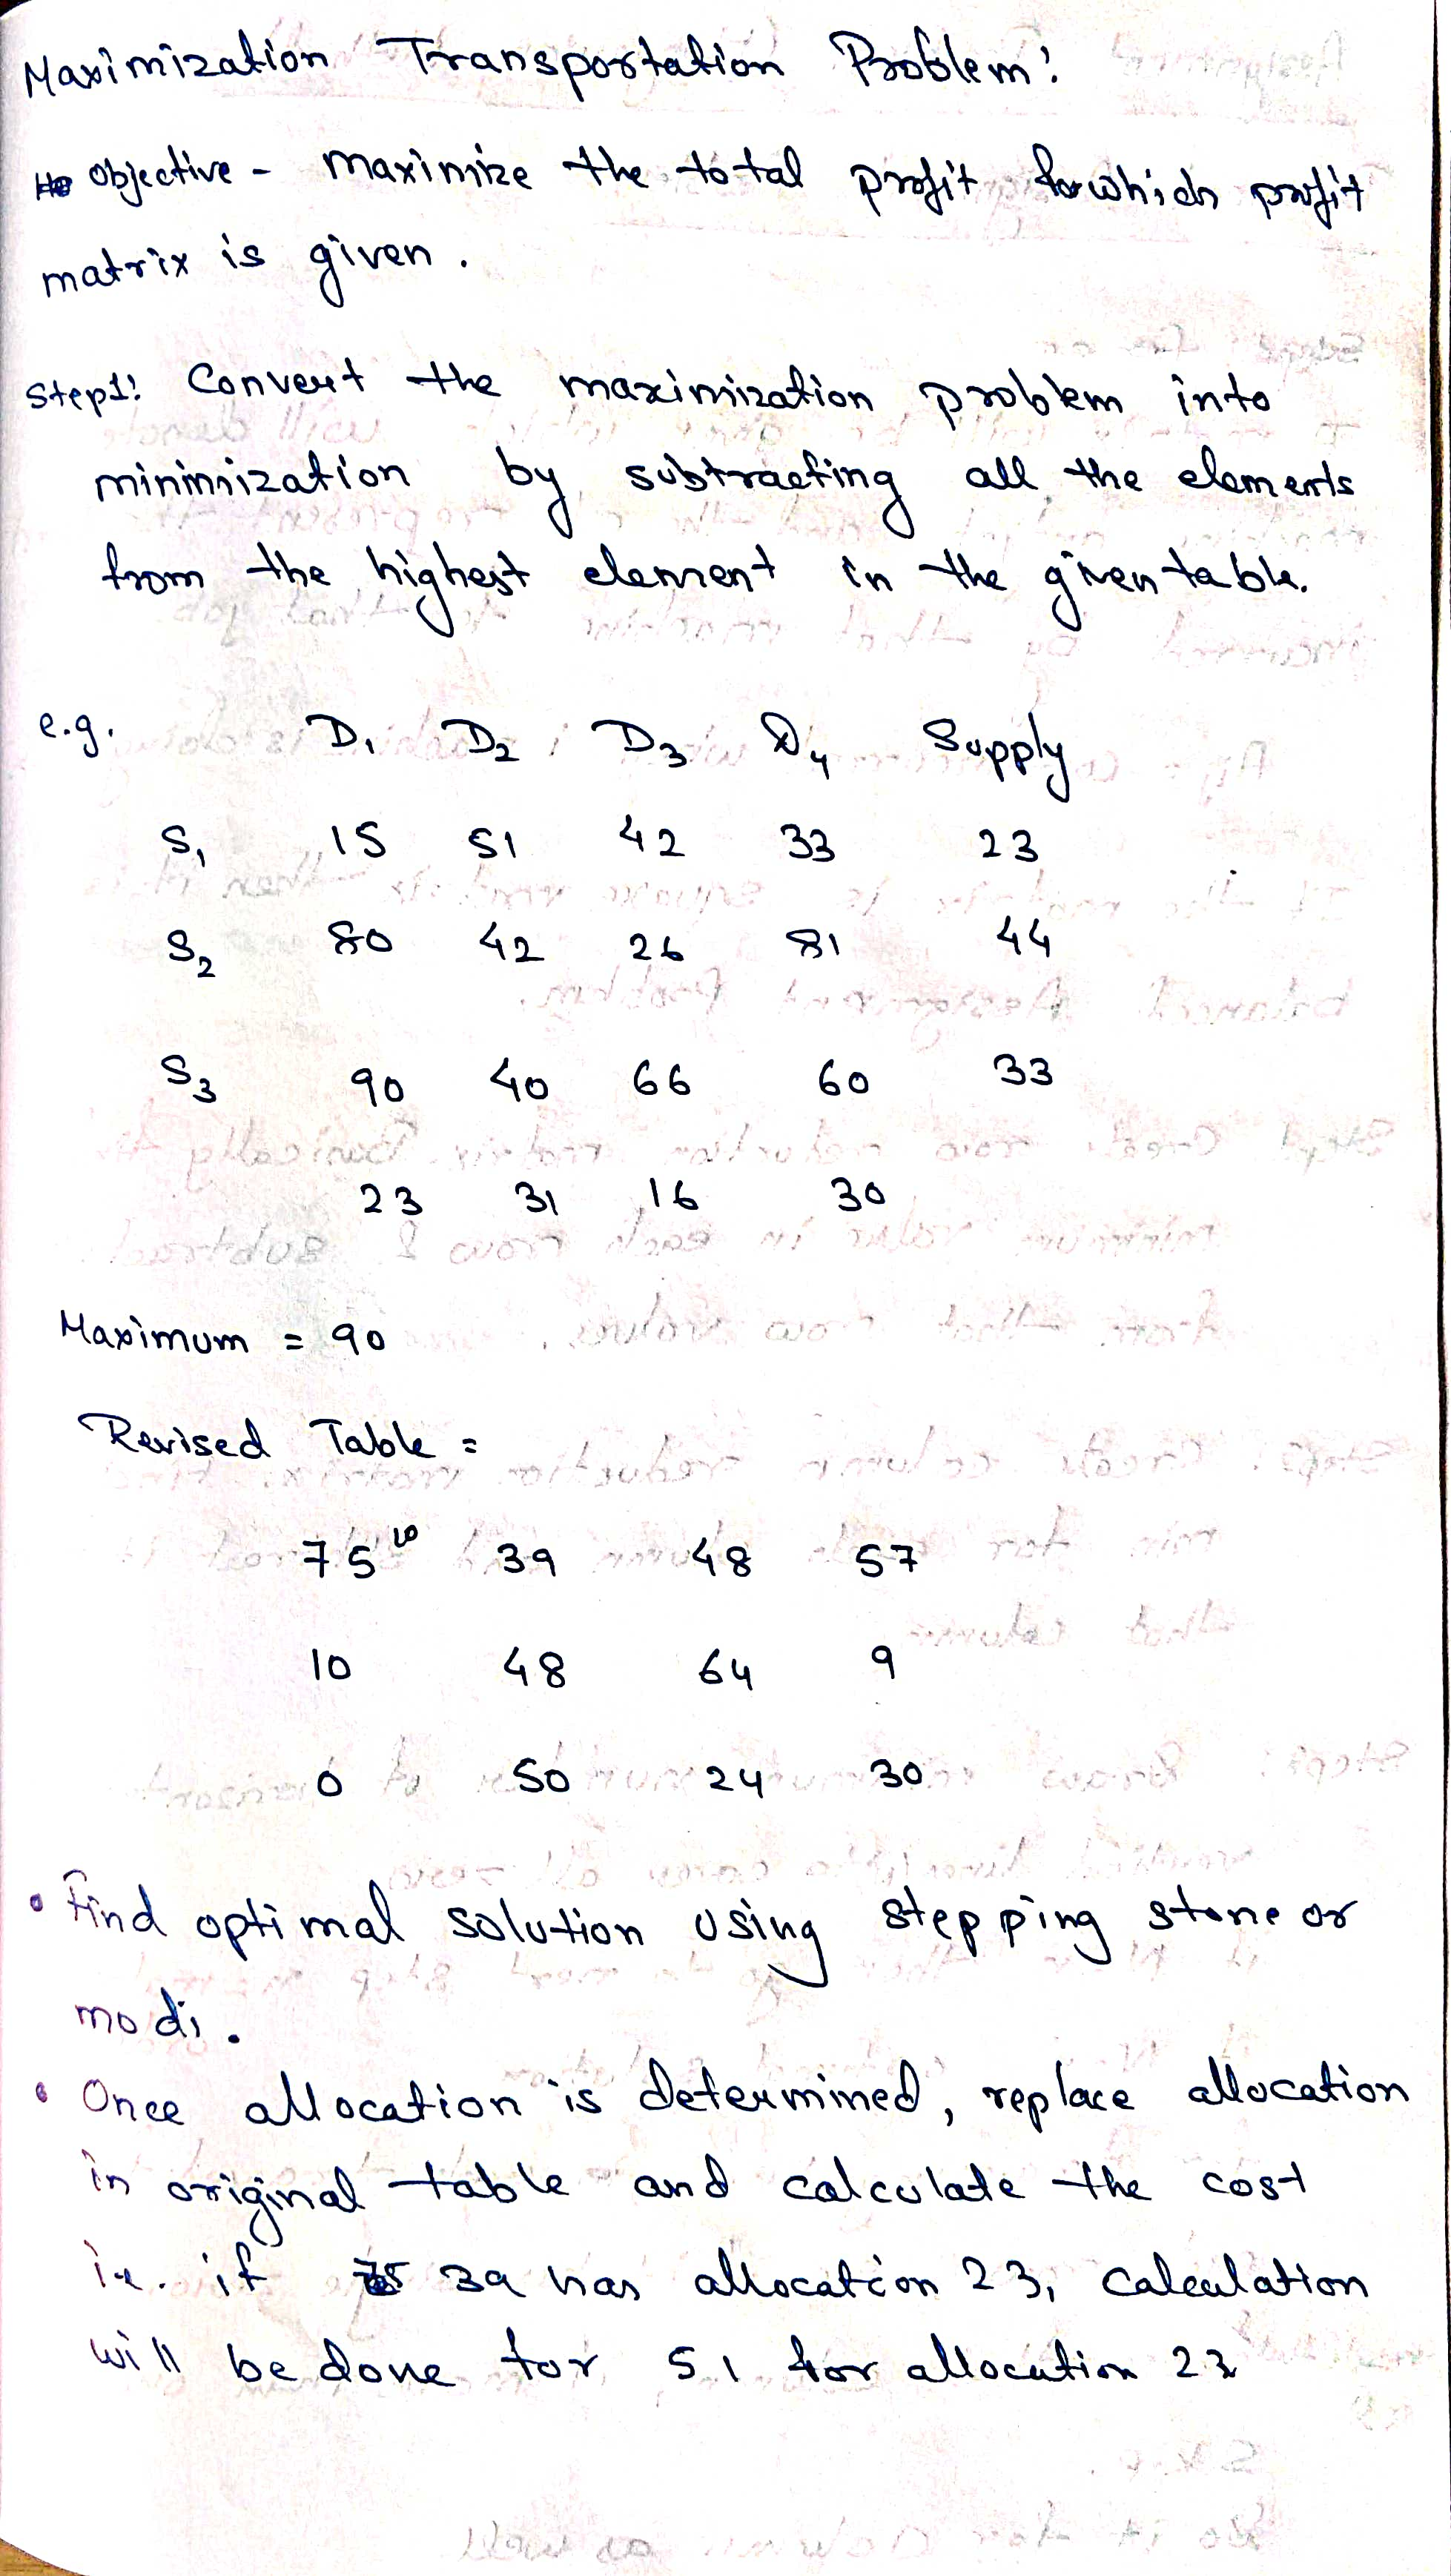 Maximization Transportation Problem:
Objective - maximize the total profit for which profit
matrix is given.
Step1: Convert the maximization problem into
minimization by subtracting all the elements
from the highest element in the given table.
e.g. D1 D2 D3 D4 Supply
S1 15 51 42 33 23
S2 80 42 26 81 44
S3 90 40 66 60 33
23 31 16 30
Maximum = 90
Revised Table =
75 39 48 57
10 48 64 9
0 50 24 30
• Find optimal solution using stepping stone or
modi.
• Once allocation is determined, replace allocation
in original table and calculate the cost
ie. if 39 has allocation 23, calculation
will be done for 51 for allocation 23